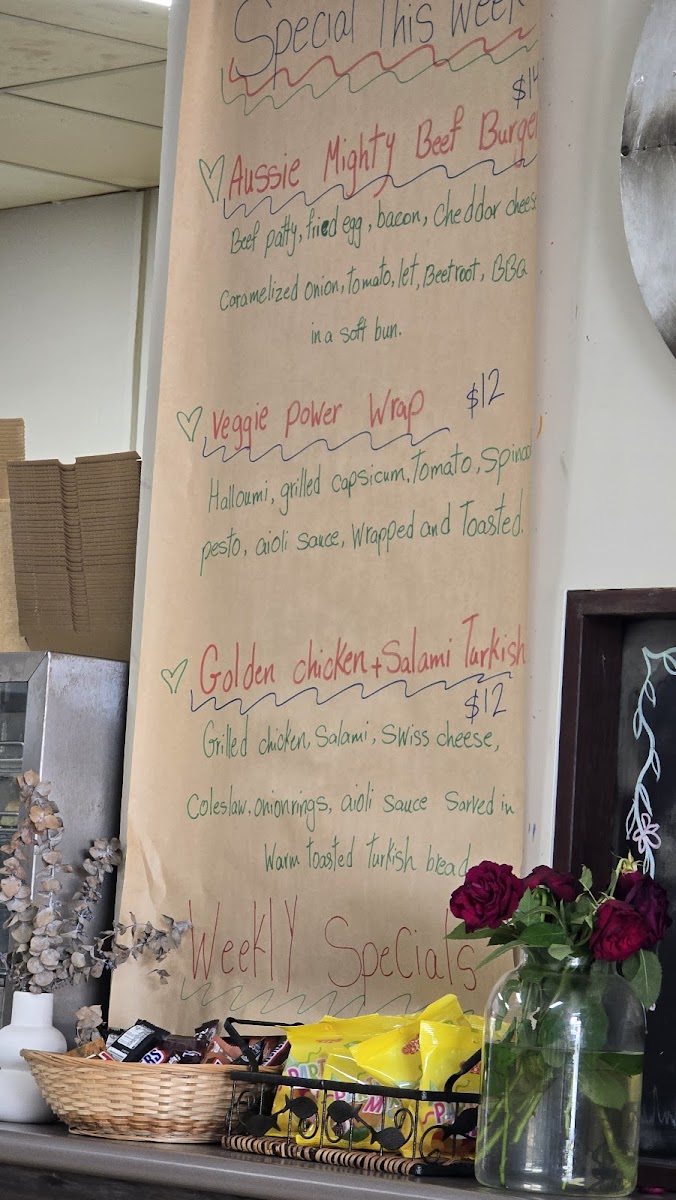 Special This Week
$14
Aussie Mighty Beef Burger
Beef patty, fried egg, bacon, cheddar cheese
Caramelized onion, tomato, let, Beetroot, BBQ
in a soft bun.
Veggie power Wrap $12
Halloumi, grilled capsicum, Tomato, Spinach
pesto, aioli sauce, Wrapped and Toasted.
Golden chicken + Salami Turkish
$12
Grilled chicken, Salami, Swiss cheese,
Coleslaw, onionrings, aioli sauce Sarved in
Warm toasted Turkish bread
Weekly Specials